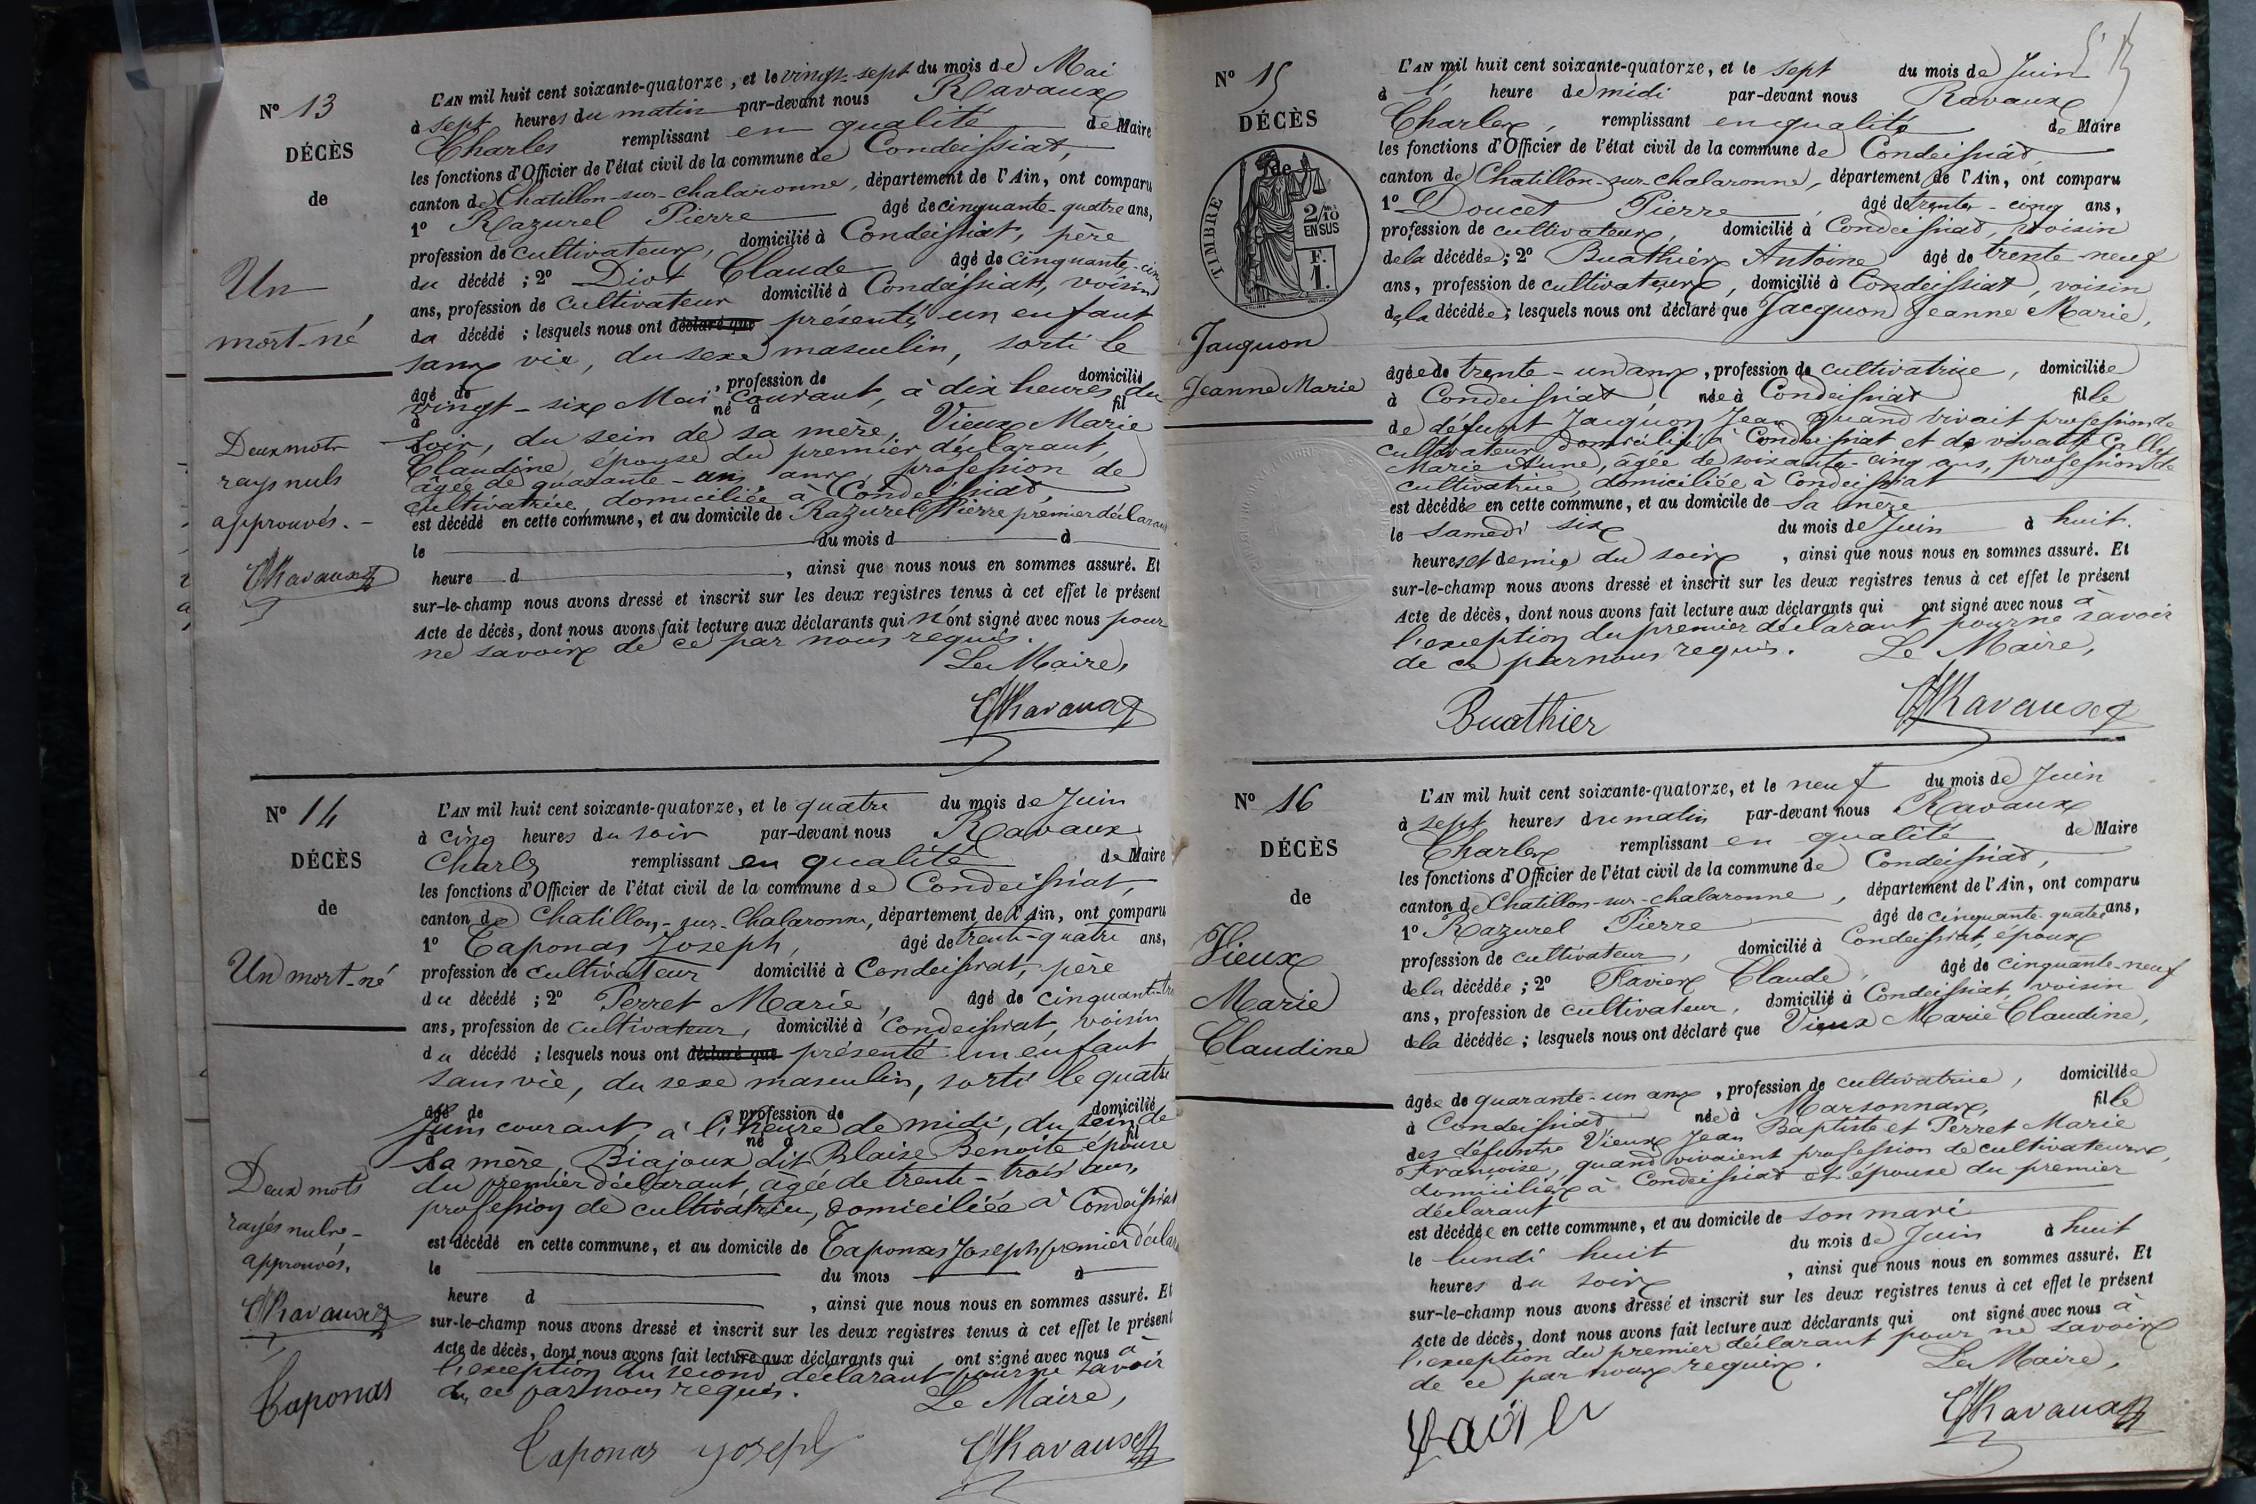 Nº 13
DÉCÈS
de
Un
mort-né
Deux mots
rayés nuls
approuvés. -
ChRavaux
L'AN mil huit cent soixante-quatorze, et le vingt-sept du mois de Mai
à sept heures du matin par-devant nous Ravaux
Charles remplissant en qualité de Maire
les fonctions d'Officier de l'état civil de la commune de Condeissiat,
canton de Chatillon-sur-chalaronne, département de l'Ain, ont comparu
1º Razurel Pierre âgé de cinquante-quatre ans,
profession de cultivateur, domicilié à Condeissiat, père
du décédé ; 2º Diot Claude âgé de cinquante-cinq
ans, profession de cultivateur domicilié à Condeissiat, voisin
du décédé ; lesquels nous ont déclaré que présenté un enfant
sans vie, du sexe masculin, sorti le
âgé de , profession de domicilié
vingt-six Mai courant, à dix heures du
à né à fil
soir, du sein de sa mère, Vieux Marie
Claudine, épouse du premier déclarant,
âgée de quarante-un ans, profession de
cultivatrice, domiciliée à Condeissiat,
est décédé en cette commune, et au domicile de Razurel Pierre premier déclarant
le du mois d à
heure d , ainsi que nous nous en sommes assuré. Et
sur-le-champ nous avons dressé et inscrit sur les deux registres tenus à cet effet le présent
Acte de décès, dont nous avons fait lecture aux déclarants qui n'ont signé avec nous pour
ne savoir de ce par nous requis.
Le Maire,
ChRavaux
Nº 14
DÉCÈS
de
Un mort-né
Deux mots
rayés nuls
approuvés,
ChRavaux
Taponas
L'AN mil huit cent soixante-quatorze, et le quatre du mois de Juin
à cinq heures du soir par-devant nous Ravaux
Charles remplissant en qualité de Maire
les fonctions d'Officier de l'état civil de la commune de Condeissiat,
canton de Chatillon-sur-Chalaronne, département de l'Ain, ont comparu
1º Taponas Joseph, âgé de trente-quatre ans,
profession de cultivateur domicilié à Condeissiat, père
du décédé ; 2º Perret Marie, âgé de cinquante-tr
ans, profession de cultivateur, domicilié à Condeissiat, voisin
du décédé ; lesquels nous ont déclaré que présenté un enfant
sans vie, du sexe masculin, sorti le quatre
âgé de profession de domicilié
Juin courant, à l' heure de midi, du sein de
à né à fil
sa mère, Biajoux dit Blaise Benoite épouse
du premier déclarant, agée de trente-trois ans,
profession de cultivatrice, domiciliée à Condeissiat
est décédé en cette commune, et au domicile de Taponas Joseph premier déclar
le du mois à
heure d , ainsi que nous nous en sommes assuré. Et
sur-le-champ nous avons dressé et inscrit sur les deux registres tenus à cet effet le présent
Acte de décès, dont nous avons fait lecture aux déclarants qui ont signé avec nous à
l'exception du second déclarant pour ne savoir
de ce par nous requis.
Le Maire,
Taponas yoseph
ChRavaux
Nº 15
DÉCÈS
de
TIMBRE
2/10
EN SUS
F.
1.
Jacquon
Jeanne Marie
L'AN mil huit cent soixante-quatorze, et le sept du mois de Juin
à l' heure de midi par-devant nous Ravaux
Charles, remplissant en qualité de Maire
les fonctions d'Officier de l'état civil de la commune de Condeissiat,
canton de Chatillon-sur-chalaronne, département de l'Ain, ont comparu
1º Doucet Pierre, âgé de trente-cinq ans,
profession de cultivateur, domicilié à Condeissiat, voisin
de la décédée ; 2º Buathier Antoine âgé de trente-neuf
ans, profession de cultivateur, domicilié à Condeissiat, voisin
de la décédée ; lesquels nous ont déclaré que Jacquon Jeanne Marie,
âgée de trente-un ans, profession de cultivatrice, domiciliée
à Condeissiat, née à Condeissiat fille
de défunt Jacquon Jean quand vivait profession de
cultivateur domicilié à Condeissiat et de vivante Cally
Marie Anne, âgée de soixante-cinq ans, profession de
cultivatrice, domiciliée à Condeissiat
est décédée en cette commune, et au domicile de sa mère
le samedi six du mois de Juin à huit
heures et demie du soir, ainsi que nous nous en sommes assuré. Et
sur-le-champ nous avons dressé et inscrit sur les deux registres tenus à cet effet le présent
Acte de décès, dont nous avons fait lecture aux déclarants qui ont signé avec nous à
l'exception du premier déclarant pour ne savoir
de ce par nous requis. Le Maire,
Buathier
ChRavaux
Nº 16
DÉCÈS
de
Vieux
Marie
Claudine
L'AN mil huit cent soixante-quatorze, et le neuf du mois de Juin
à sept heures du matin par-devant nous Ravaux
Charles remplissant en qualité de Maire
les fonctions d'Officier de l'état civil de la commune de Condeissiat,
canton de Chatillon-sur-chalaronne, département de l'Ain, ont comparu
1º Razurel Pierre âgé de cinquante-quatre ans,
profession de cultivateur, domicilié à Condeissiat, époux
de la décédée ; 2º Ravier Claude, âgé de cinquante-neuf
ans, profession de cultivateur, domicilié à Condeissiat, voisin
de la décédée ; lesquels nous ont déclaré que Vieux Marie Claudine,
âgée de quarante-un ans, profession de cultivatrice, domiciliée
à Condeissiat née à Marsonnas, fille
des défunts Vieux Jean Baptiste et Perret Marie
Françoise, quand vivaient profession de cultivateurs,
domiciliés à Condeissiat et épouse du premier
déclarant
est décédée en cette commune, et au domicile de son mari
le lundi huit du mois de Juin à huit
heures du soir, ainsi que nous nous en sommes assuré. Et
sur-le-champ nous avons dressé et inscrit sur les deux registres tenus à cet effet le présent
Acte de décès, dont nous avons fait lecture aux déclarants qui ont signé avec nous à
l'exception du premier déclarant pour ne savoir
de ce par nous requis.
Le Maire,
ChRavaux